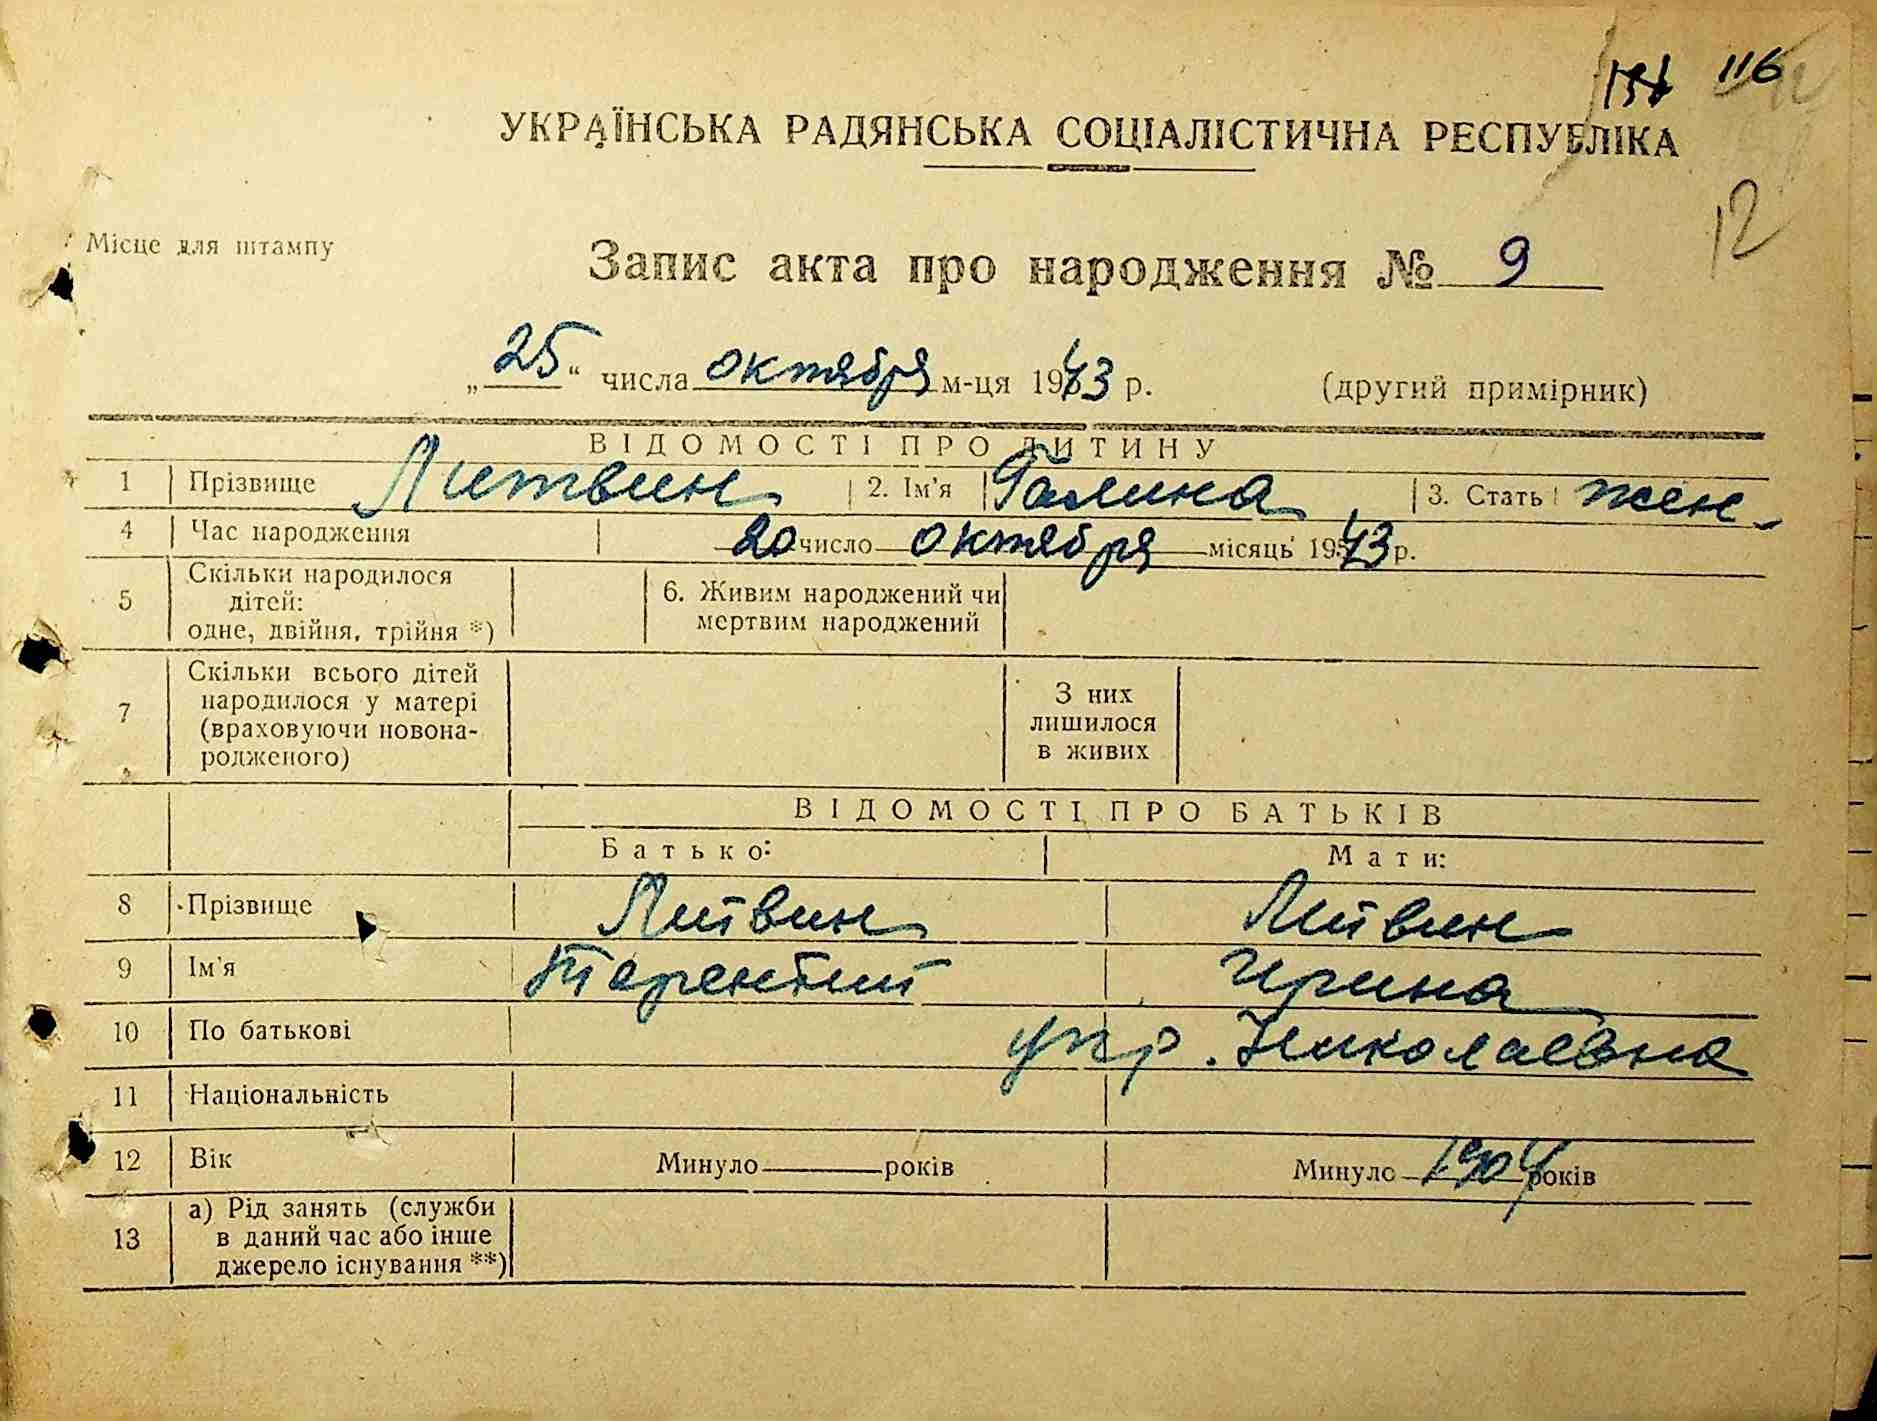 116
УКРАЇНСЬКА РАДЯНСЬКА СОЦІАЛІСТИЧНА РЕСПУБЛІКА
12
Місце для штампу
Запис акта про народження № 9
„25“ числа октября м-ця 1943 р. (другий примірник)
ВІДОМОСТІ ПРО ДИТИНУ
1 Прізвище Литвин 2. Ім'я Галина 3. Стать жен.
4 Час народження 20 число октября місяць 1943 р.
5 Скільки народилося дітей: одне, двійня, трійня *) 6. Живим народжений чи мертвим народжений
7 Скільки всього дітей народилося у матері (враховуючи новона-родженого) З них лишилося в живих
ВІДОМОСТІ ПРО БАТЬКІВ
Батько: Мати:
8 Прізвище Литвин Литвин
9 Ім'я Терентий Ирина
10 По батькові укр. Николаевна
11 Національність
12 Вік Минуло років Минуло 1904 років
13 а) Рід занять (служби в даний час або інше джерело існування **)